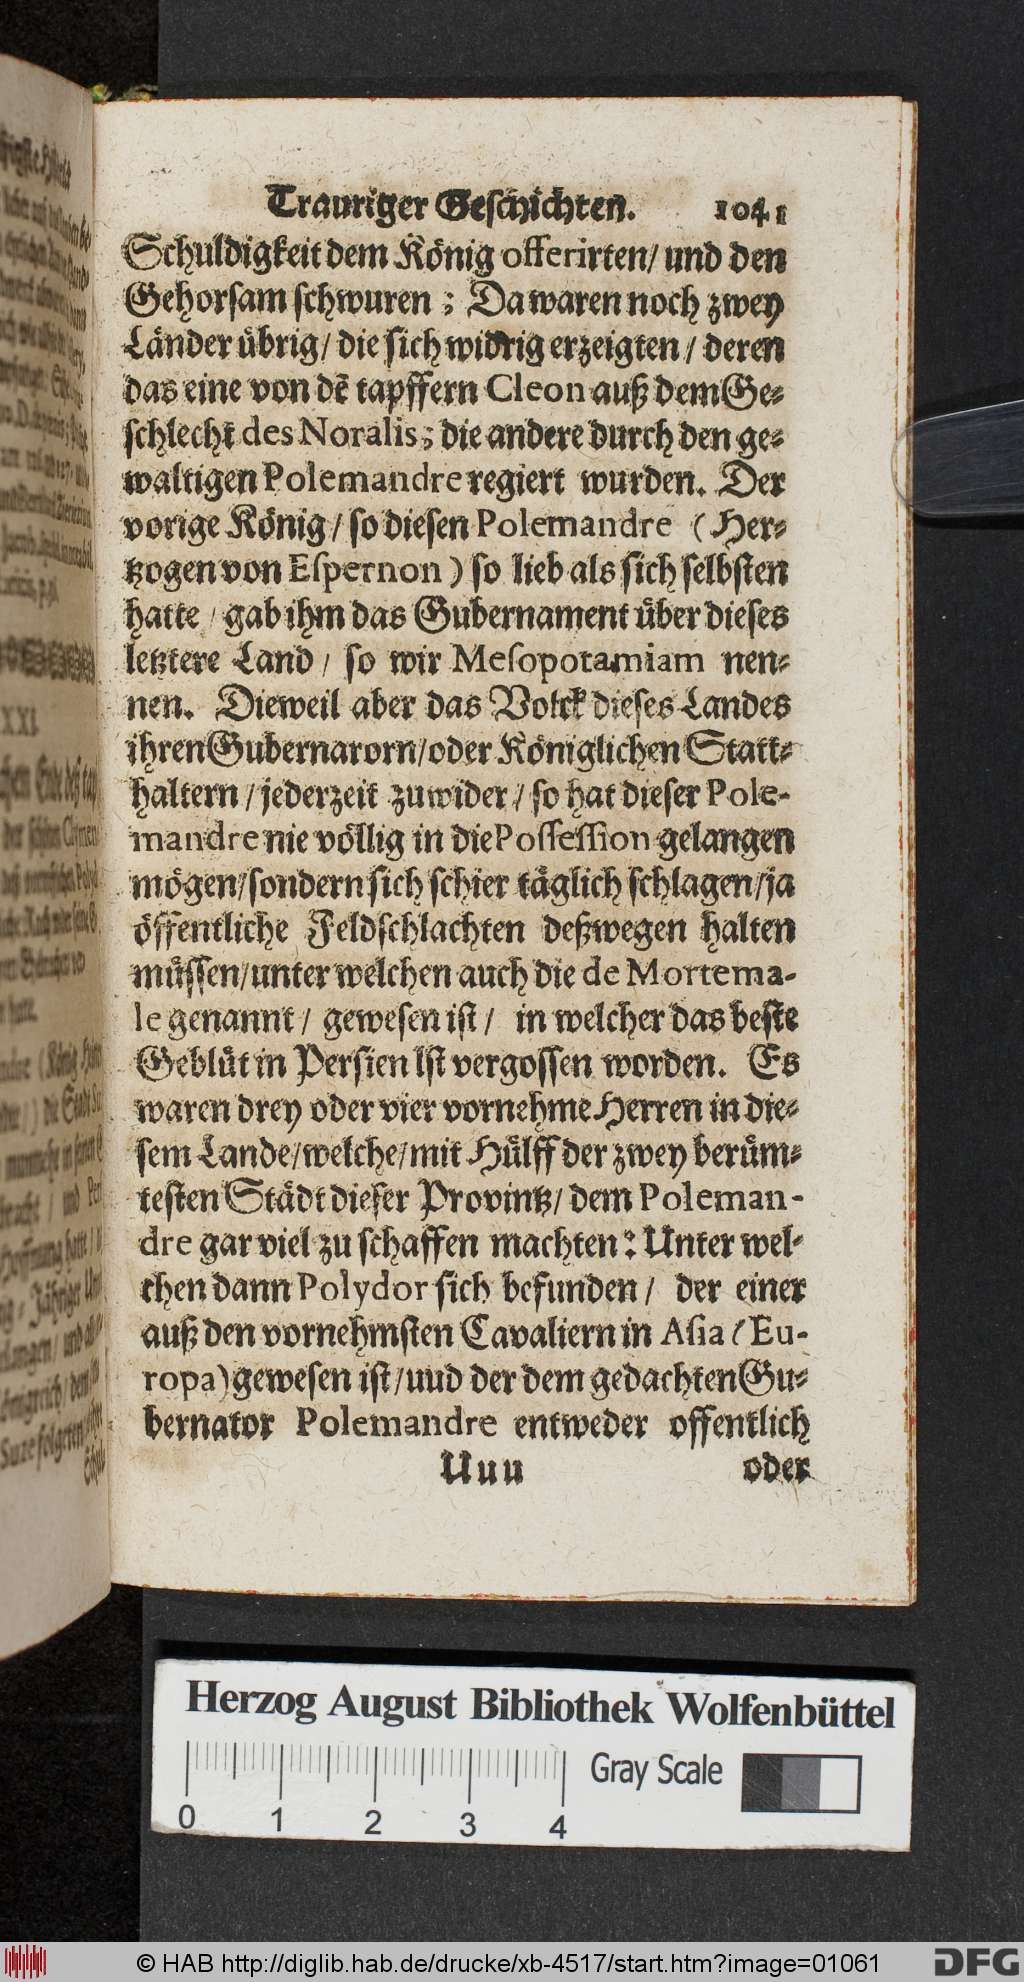 Trauriger Geschichten. 1041
Schuldigkeit dem König offerirten/ und den
Gehorsam schwuren ; Da waren noch zwey
Länder übrig/ die sich widrig erzeigten / deren
das eine von dẽ tapffern Cleon auß dem Ge-
schlecht des Noralis; die andere durch den ge-
waltigen Polemandre regiert wurden. Der
vorige König / so diesen Polemandre ( Her-
tzogen von Espernon ) so lieb als sich selbsten
hatte / gab ihm das Gubernament über dieses
letztere Land / so wir Mesopotamiam nen-
nen. Dieweil aber das Volck dieses Landes
ihren Gubernarorn/oder Königlichen Statt-
haltern / jederzeit zuwider / so hat dieser Pole-
mandre nie völlig in die Possession gelangen
mögen/sondern sich schier täglich schlagen/ja
öffentliche Feldschlachten deßwegen halten
müssen/unter welchen auch die de Mortema-
le genannt / gewesen ist / in welcher das beste
Geblüt in Persien Ist vergossen worden. Es
waren drey oder vier vornehme Herren in die-
sem Lande/welche/mit Hülff der zwey berüm-
testen Städt dieser Provintz/ dem Poleman-
dre gar viel zu schaffen machten : Unter wel-
chen dann Polydor sich befunden / der einer
auß den vornehmsten Cavaliern in Asia (Eu-
ropa) gewesen ist/uud der dem gedachten Gu-
bernator Polemandre entweder offentlich
Uuu oder
Herzog August Bibliothek Wolfenbüttel
Gray Scale
0 1 2 3 4
© HAB http://diglib.hab.de/drucke/xb-4517/start.htm?image=01061
DFG